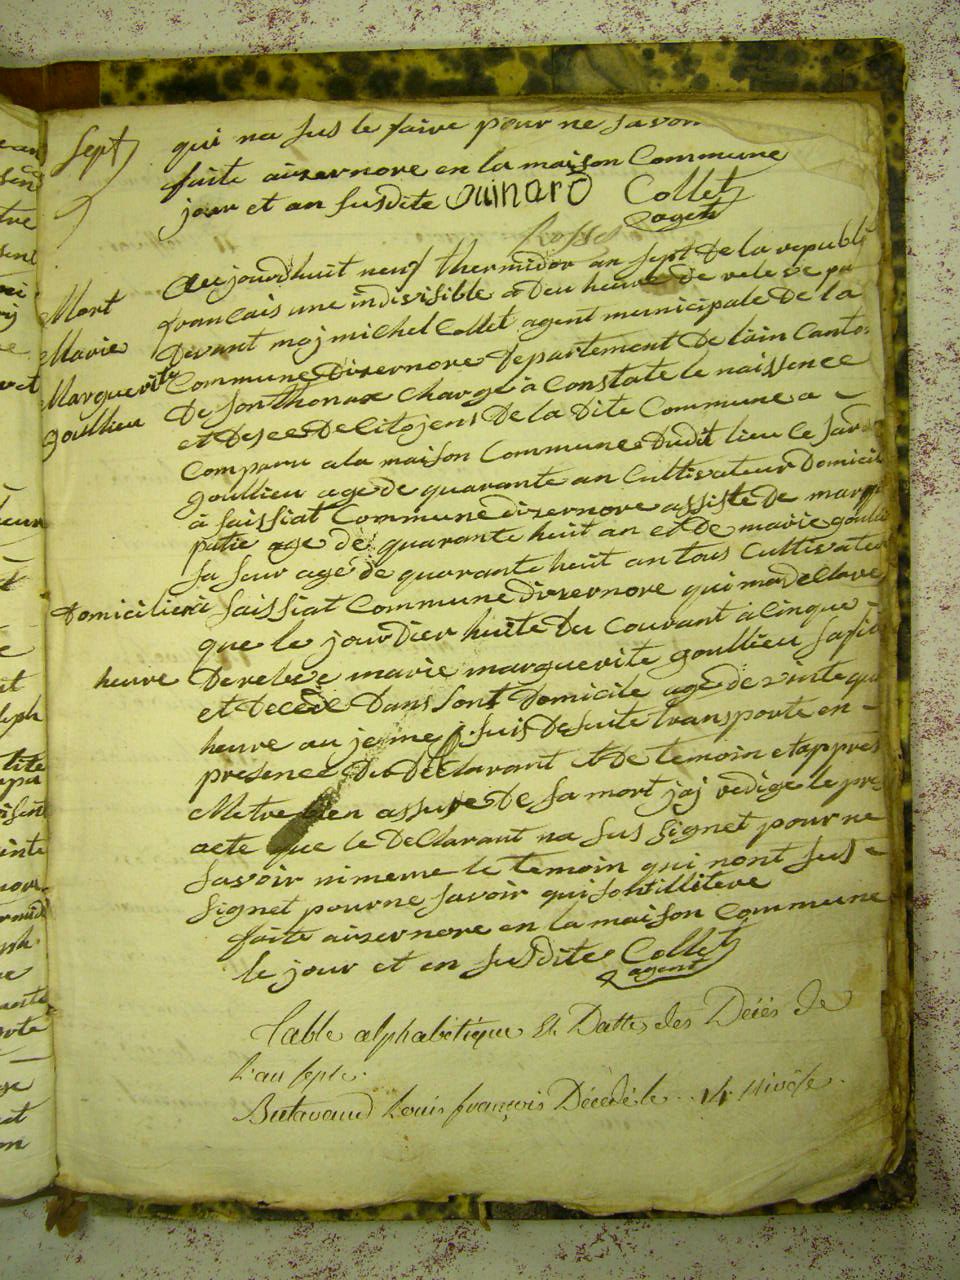 Sept
qui na sus le faire pour ne savoir
faite aizernore en la maison Commune
jour et an susdite ouinard Collet
agent
aujourdhuit neuf thermidor an sept De la republi
francais une indivisible a Deu heure De releve pa
Devant moj michel Collet agent municipale De la
Commune Dizernore Departement De lain Canto
De sonthonax Chargé à Constate le naissence
et Deseé De Citojens De la Dite Commune a
Comparu a la maison Commune Dudit lieu Ce
goullieu age de quarante an Cultivateur Domicil
à saissiat Commune dizernore assiste De
age de quarante huit an et De marie goulli
sa seur age de quarante huit an tous Cultivater
Domicilier a saissiat Commune Dizernore qui ma declare
que le jour Dier huite Du Courant à Cinque
heure De releve marie marguerite goullieu sa
et Decede Dans son Domicile age de vinte qua
heure au je me suis De suite transporte en
presence Du Declarant et De temoin et appres
Metre bien assure De sa mort jaj redige le pre
acte que le Declarant na sus signet pour ne
savoir ni meme le temoin qui nont sus
signet pour ne savoir qui sont illitere
faite aizernore en la maison Commune
le jour et an susdite Collet
agent
Mort
Marie
Marguerite
goullieu
Table alphabétique et Datte des Décès de
l'an septe.
Butavand Louis françois Décédé le .. 14 Nivôse.